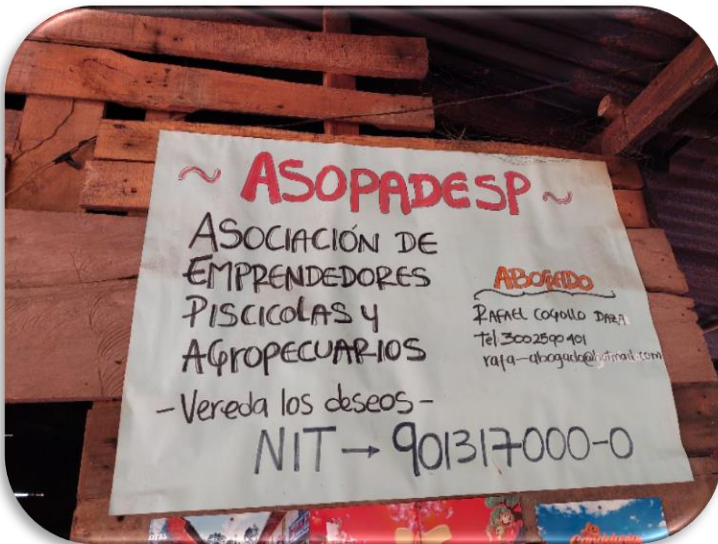 ~ ASOPADESP ~
ASOCIACIÓN DE
EMPRENDEDORES
PISCICOLAS Y
AGROPECUARIOS
- Vereda los deseos -
NIT → 901317000-0
ABOGADO
RAFAEL COGOLLO DAZA
Tel. 3002590401
rafa-abogado@hotmail.com
La